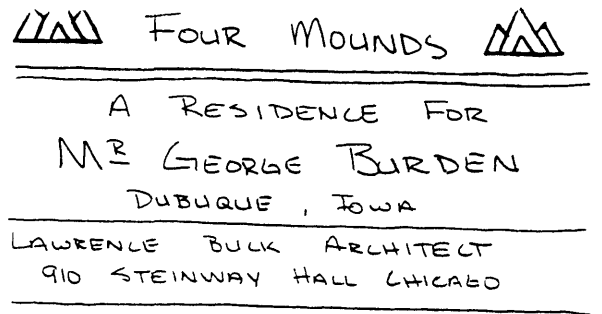 FOUR MOUNDS
A RESIDENCE FOR
MR GEORGE BURDEN
DUBUQUE, IOWA
LAWRENCE BUCK ARCHITECT
910 STEINWAY HALL CHICAGO